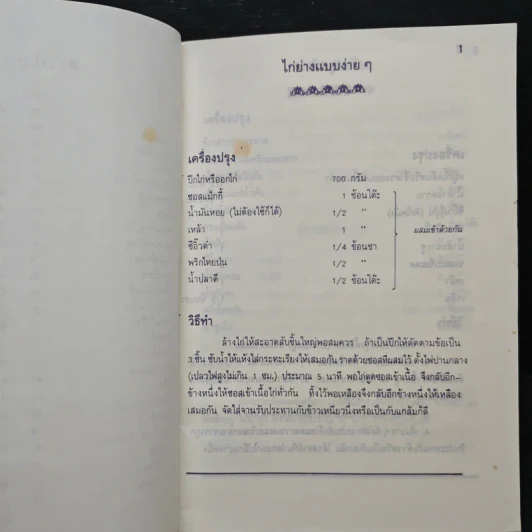 1
ไก่ย่างแบบง่าย ๆ
เครื่องปรุง
ปีกไก่หรืออกไก่ 700 กรัม
ซอสแม๊กกี้ 1 ช้อนโต๊ะ
น้ำมันหอย (ไม่ต้องใช้ก็ได้) 1/2 "
เหล้า 1 " ผสมเข้าด้วยกัน
ซีอิ๊วดำ 1/4 ช้อนชา
พริกไทยป่น 1/2 "
น้ำปลาดี 1/2 ช้อนโต๊ะ
วิธีทำ
ล้างไก่ให้สะอาดสับชิ้นใหญ่พอสมควร ถ้าเป็นปีกให้ตัดตามข้อเป็น
3 ชิ้น ซับน้ำให้แห้งใส่กระทะเรียงให้เสมอกัน ราดด้วยซอสที่ผสมไว้ ตั้งไฟปานกลาง
(เปลวไฟสูงไม่เกิน 1 ซม.) ประมาณ 5 นาที พอไก่ดูดซอสเข้าเนื้อ จึงกลับอีก-
ข้างหนึ่งให้ซอสเข้าเนื้อไก่ทั่วกัน ทิ้งไว้พอเหลืองจึงกลับอีกข้างหนึ่งให้เหลือง
เสมอกัน จัดใส่จานรับประทานกับข้าวเหนียวนึ่งหรือเป็นกับแกล้มก็ดี